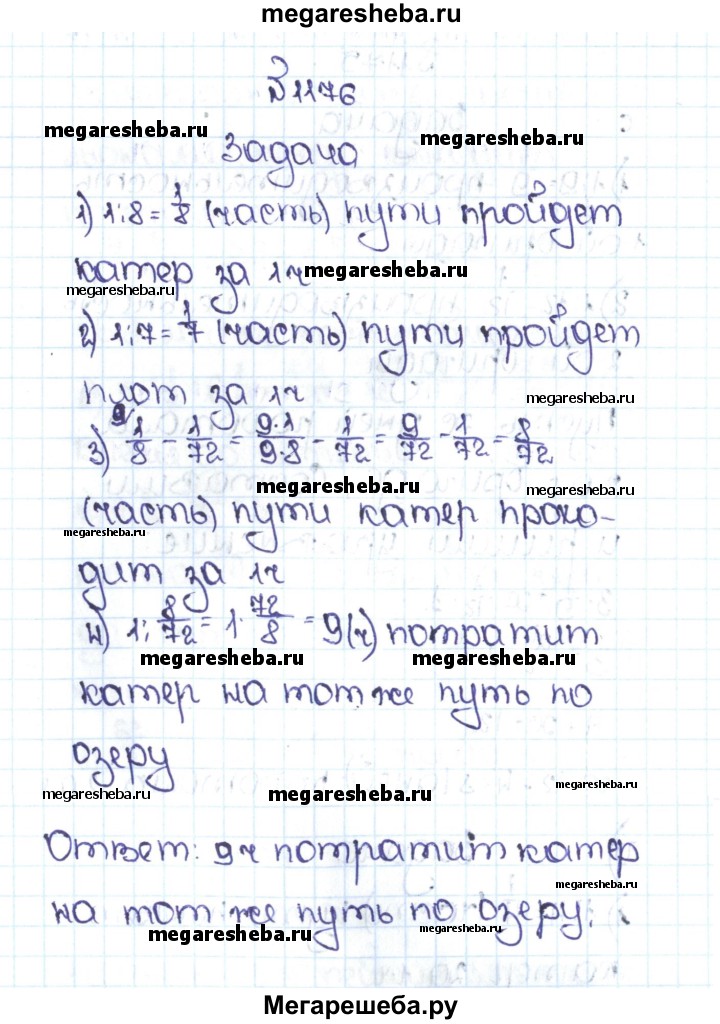 megaresheba.ru
№1176
megaresheba.ru
megaresheba.ru
Задача
1) 1:8=1/8 (часть) пути пройдет
катер за 1ч
megaresheba.ru
megaresheba.ru
2) 1:7=1/7 (часть) пути пройдет
плот за 1ч
megaresheba.ru
3) 9/ 1/8 - 1/72 = 9·1/9·8 - 1/72 = 9/72 - 1/72 = 8/72
megaresheba.ru
megaresheba.ru
(часть) пути катер прохо-
megaresheba.ru
дит за 1ч
4) 1:8/72 = 1·72/8 = 9(ч) потратит
megaresheba.ru
megaresheba.ru
катер на тот же путь по
озеру
megaresheba.ru
megaresheba.ru
megaresheba.ru
Ответ: 9ч потратит катер
megaresheba.ru
на тот же путь по озеру.
megaresheba.ru
megaresheba.ru
Мегарешеба.ру